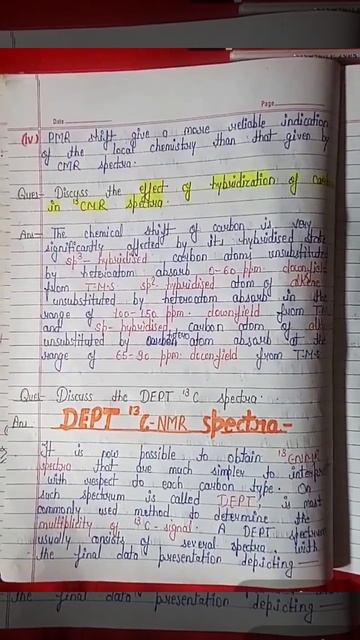 Date
Page
(iv) PMR shift give a more reliable indication
of the local chemistry than that given by
CMR spectra.
Ques- Discuss the effect of hybridization of
in ¹³CMR spectra.
Ans- The chemical shift of carbon is very
significantly affected by it's hybridised state
sp³- hybridised carbon atoms unsubstituted
by heteroatom absorb 0-60 ppm. downfield
from T.M.S sp² hybridised atom of alkene
unsubstituted by heteroatom absorb in the
range of 100-150 ppm. downfield from T.M.S
and sp- hybridised carbon atom of
unsubstituted by hetero atom absorb at the
range of 65-90 ppm. downfield from T.M.S
Ques- Discuss the DEPT ¹³C spectra.
Ans. DEPT ¹³C-NMR spectra.-
It is now possible to obtain ¹³C-NMR
spectra that are much simpler to
with respect to each carbon type. On
such spectrum is called DEPT, is most
commonly used method to determine the
multiplicity of ¹³C-signal. A DEPT spectrum
usually consists of several spectra, with
the final data presentation depicting
the final data presentation depicting